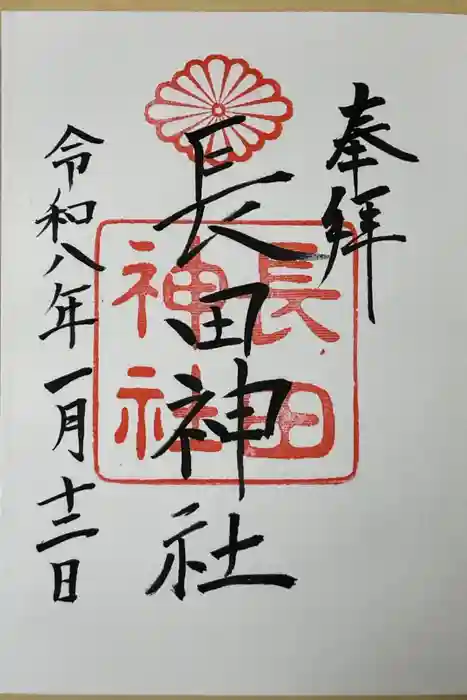 奉拝
長田神社
長田
神社
令和八年一月十三日